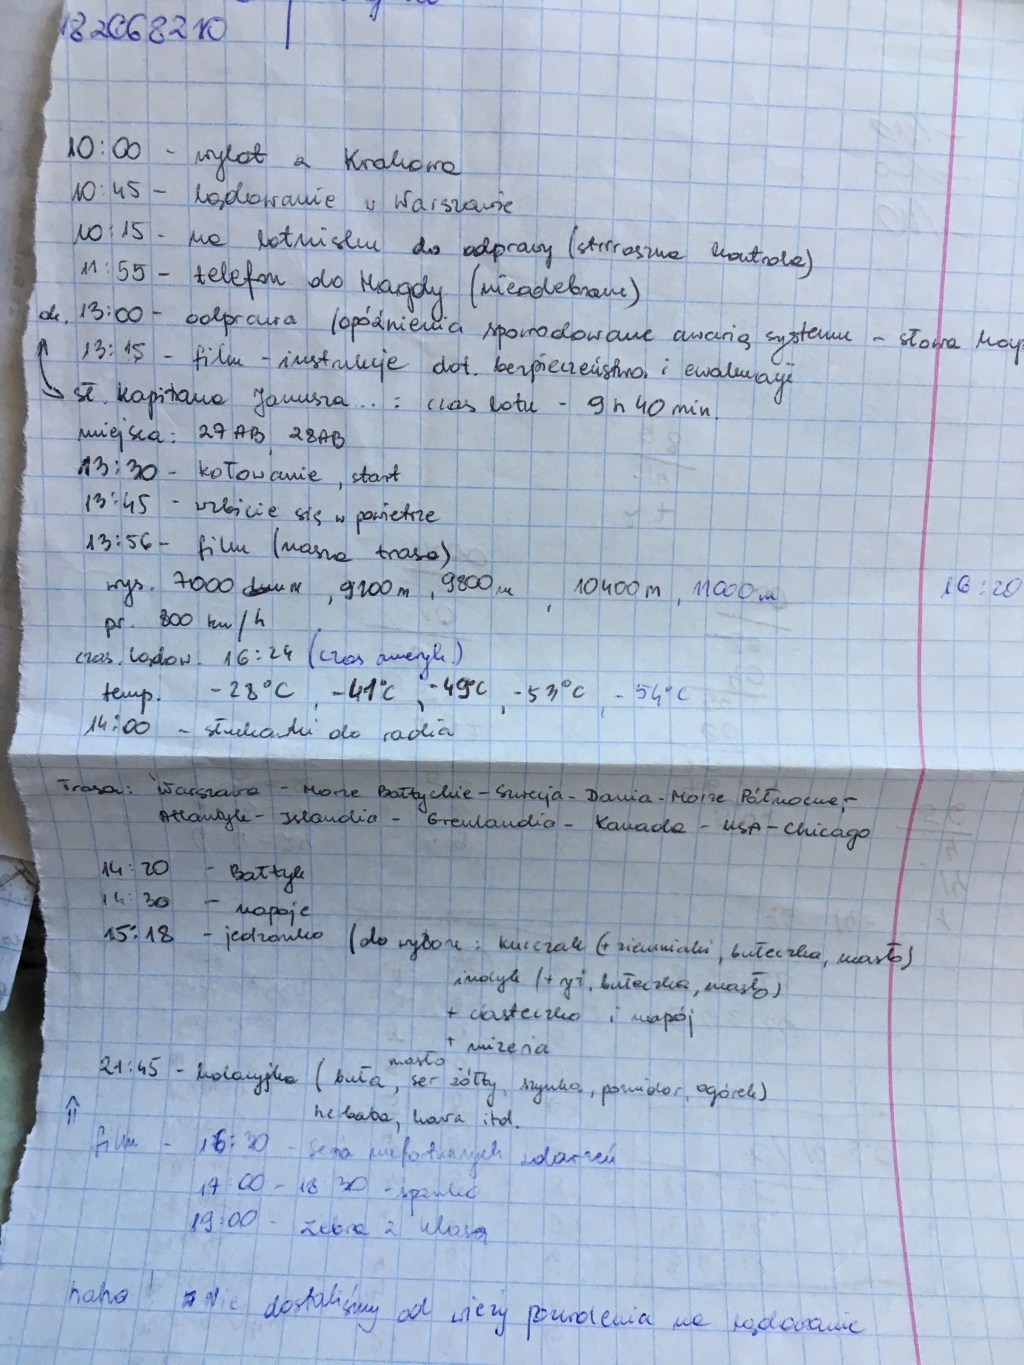 182068210
10:00 - wylot z Krakowa
10:45 - lądowanie w Warszawie
10:15 - na lotnisku do odprawy (strrraszna kontrola)
11:55 - telefon do Magdy (nieodebrane)
ok. 13:00 - odprawa (opóźnienia spowodowane awarią systemu - słowa
13:15 - film - instrukcje dot. bezpieczeństwa i ewakuacji
sł. kapitana Janusza... : czas lotu - 9 h 40 min.
miejsca: 27AB, 28AB
13:30 - kołowanie, start
13:45 - wzbicie się w powietrze
13:56 - film (nasza trasa)
wys. 7000 m, 9200 m, 9800 m, 10400 m, 11000 m 16:20
pr. 800 km/h
czas lądow. 16:24 (czas ameryk.)
temp. -28°C, -41°C, -49°C, -53°C, -54°C
14:00 - słuchawki do radia
Trasa: Warszawa - Morze Bałtyckie - Szwecja - Dania - Morze Północne -
Atlantyk - Islandia - Grenlandia - Kanada - USA - Chicago
14:20 - Bałtyk
14:30 - napoje
15:18 - jedzonko (do wyboru: kurczak (+ ziemniaki, bułeczka, masło)
indyk (+ ryż, bułeczka, masło)
+ ciasteczko i napój
+ mizeria
21:45 - kolacyjka (buła, masło, ser żółty, szynka, pomidor, ogórek)
herbata, kawa itd.
film - 16:30 - Seria niefortunnych zdarzeń
17:00 - 18:30 - spanko
19:00 - Zebra z klasą
haha! Nie dostaliśmy od wieży pozwolenia na lądowanie